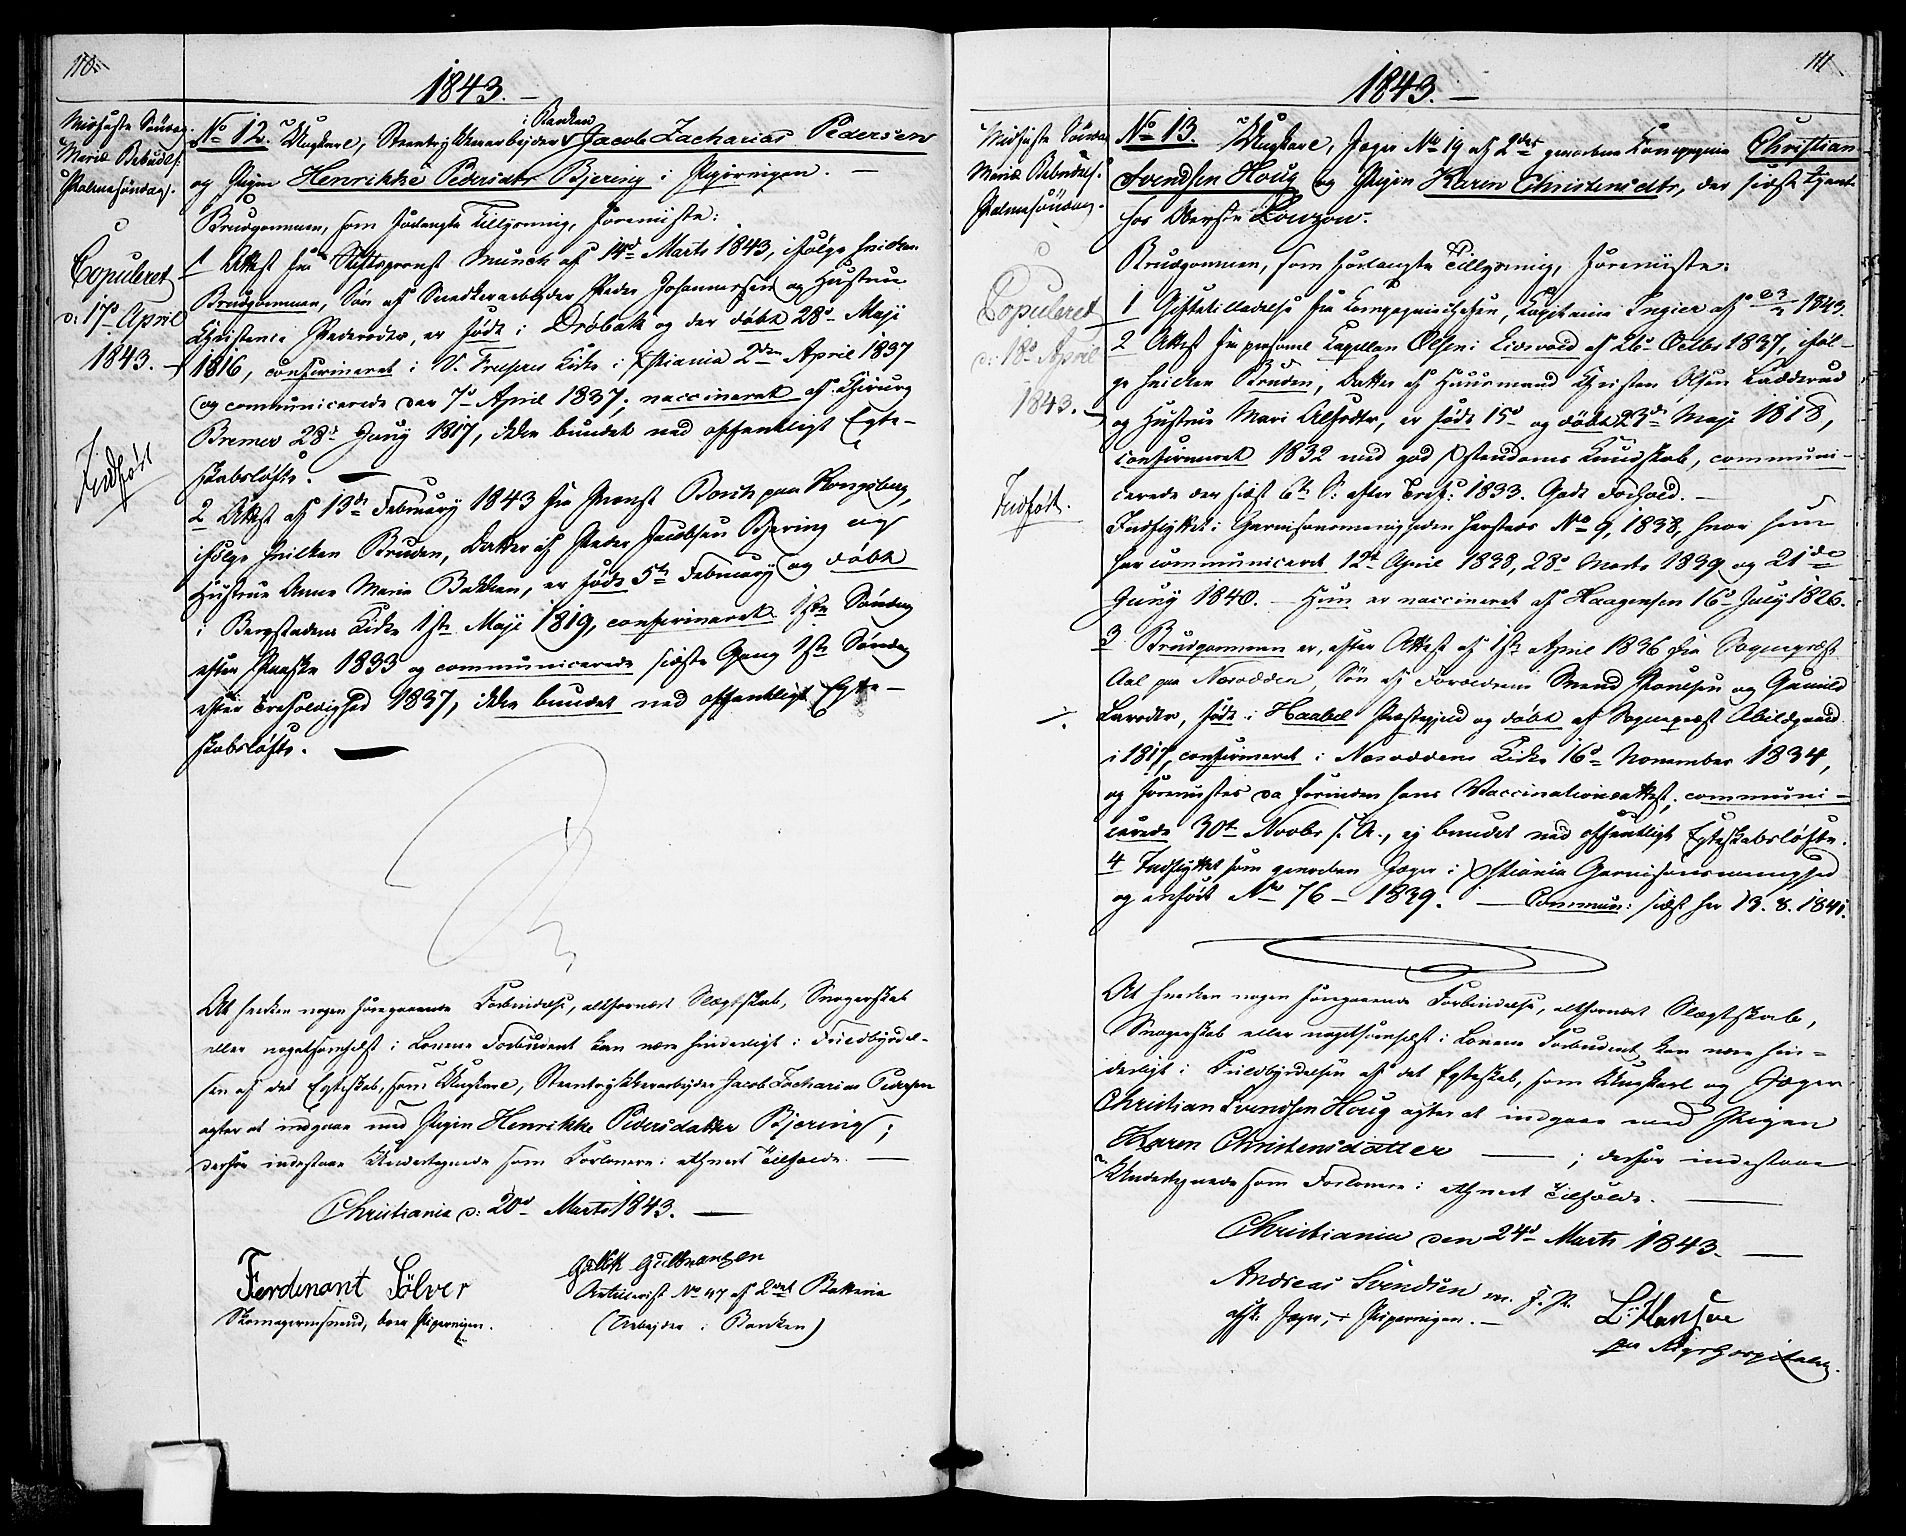 110.
1843.
Midfaste Søndag.
Mariæ Bebud.
Palmesøndag.
Copuleret
d: 17de April
1843.
Indført
i Banken
No 12. Ungkarl, Steentrykkerarbeyder Jacob Zacharias Pedersen
og Pigen Henrikke Pedersdtr Bjering i Pipervigen.
Brudgommen, som forlangte Tillysning, foreviste:
1 Attest fra Stiftsprovst Munch af 14de Marts 1843, ifølge hvilken
Brudgommen, Søn af Snedkerarbeyder Peder Johannessen og Hustrue
Christence Pedersdtr, er født i Drøbak og der døbt 28de Maji
1816, confirmeret i V. Frelsers Kirke i Xstiania 2den April 1837
og communicerede den 7de April 1837, vaccineret af Chirurg
Bremer 28de Juny 1817, ikke bundet ved offentligt Egte-
skabsløfte.
2 Attest af 13de February 1843 fra Provst Borch paa Kongsberg,
ifølge hvilken Bruden, Datter af Peder Jacobsen Bjering og
Hustrue Anne Marie Bakken, er født 5te February og døbt
i Bergstadens Kirke 1ste Maji 1819, confirmeret 1ste Søndag
efter Paaske 1833 og communicerede sidste Gang 1ste Søndag
efter Trefoldighed 1837, ikke bundet ved offentligt Egte-
skabsløfte.
At hverken nogen foregaaende Forbindelse, altfornært Slægtskab, Svogerskab
eller nogetsomhelst i Lovene Forbudent kan være hinderligt i Fuldbyrdel-
sen af det Egteskab, som Ungkarl, Steentrykkerarbejder Jacob Zacharias Pedersen
agter at indgaae med Pigen Henrikke Pedersdatter Bjering;
derfor indestaae Undertegnede som Forlovere i ethvert Tilfælde.
Christiania d: 20de Marts 1843.
Ferdinant Sølver
Skomagersvend, boer Pipervigen.
Gulbransen
Artillerist No 47 af 2det Batterie
(Arbejder i Banken)
111
1843.
Midfaste Søndag
Mariæ Bebudels.
Palmesøndag.
Copuleret
d: 18de April
1843.
Indført.
No 13. Ungkarl, Jæger No 19 af 2det gevorbne Compagnie Christian
Svendsen Houg og Pigen Karen Christensdtr, der sidst tjente
hos Oberste Lowzow.
Brudgommen, som forlangte Tillysning, foreviste:
1 Giftetilladelse fra Compagniechefen, Capitaine Ingier af 1843.
2 Attest fra personel Kapellan Olsen i Eidsvold af 26de Octbr 1837, iføl-
ge hvilken Bruden, Datter af Huusmand Christen Olsen Ladderud
og Hustrue Mari Olsdtr, er født 15de og døbt 23de Maji 1818,
confirmeret 1832 med god Xstendoms Kundskab, communi-
cerede der sidst 6te S: efter Tref: 1833. Godt Forhold.
Indflyttet i Garnisonsmenigheden hersteds No 9, 1838, hvor hun
har communiceret 12te April 1838, 28de Marts 1839 og 21de
Juny 1840. Hun er vaccineret af Haagensen 16de July 1826.
3 Brudgommen er, efter Attest af 1ste April 1836 fra Sognepræst
Aal paa Næsodden, Søn af Forældrene Svend Poulsen og Gunild
Larsdtr, født i Haabøl Præstegjeld og døbt af Sognepræst Abildgaard
i 1817, confirmeret i Næsoddens Kirke 16de November 1834,
og forevistes da forinden hans Vaccinationsattest, communi-
cerede 30te Novbr s. A., ej bundet ved offentligt Egteskabsløfte.
4 Indflyttet som gevorben Jæger i Xstiania Garnisonsmenighed
og anført No 76 - 1839. Commun: sidst her 13. 8. 1841.
At hverken nogen foregaaende Forbindelse, altfornært Slægtskab,
Svogerskab eller nogetsomhelst i Lovene Forbudent kan være hin-
derligt i Fuldbyrdelsen af det Egteskab, som Ungkarl og Jæger
Christian Svendsen Houg agter at indgaae med Pigen
Karen Christensdatter ; derfor indestaae
Undertegnede som Forlovere i ethvert Tilfælde.
Christiania den 24de Marts 1843.
Andreas Svendsen m. f. P.
afsk. Jæger, i Pipervigen.
L: Hansen
paa Rigshospitalet.